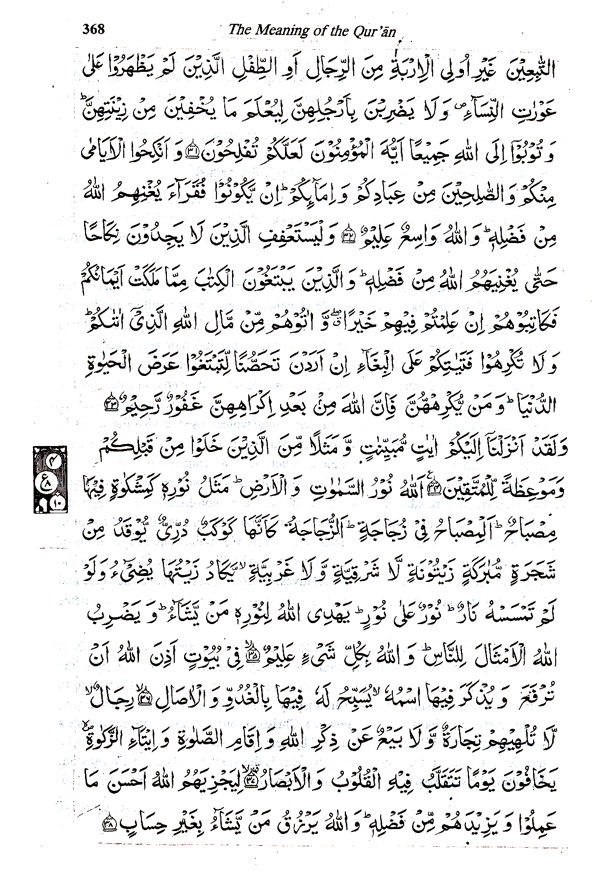 368 The Meaning of the Qur'ān
التّٰبِعِيْنَ غَيْرِ اُولِي الْاِرْبَةِ مِنَ الرِّجَالِ اَوِ الطِّفْلِ الَّذِيْنَ لَمْ يَظْهَرُوْا عَلٰى
عَوْرٰتِ النِّسَآءِ ۪ وَلَا يَضْرِبْنَ بِاَرْجُلِهِنَّ لِيُعْلَمَ مَا يُخْفِيْنَ مِنْ زِيْنَتِهِنَّ ؕ
وَ تُوْبُوْٓا اِلَى اللّٰهِ جَمِيْعًا اَيُّهَ الْمُؤْمِنُوْنَ لَعَلَّكُمْ تُفْلِحُوْنَ ﴿۳۱﴾ وَ اَنْكِحُوا الْاَيَامٰى
مِنْكُمْ وَالصّٰلِحِيْنَ مِنْ عِبَادِكُمْ وَ اِمَآئِكُمْ ؕ اِنْ يَّكُوْنُوْا فُقَرَآءَ يُغْنِهِمُ اللّٰهُ
مِنْ فَضْلِهٖ ؕ وَاللّٰهُ وَاسِعٌ عَلِيْمٌ ﴿۳۲﴾ وَلْيَسْتَعْفِفِ الَّذِيْنَ لَا يَجِدُوْنَ نِكَاحًا
حَتّٰى يُغْنِيَهُمُ اللّٰهُ مِنْ فَضْلِهٖ ؕ وَالَّذِيْنَ يَبْتَغُوْنَ الْكِتٰبَ مِمَّا مَلَكَتْ اَيْمَانُكُمْ
فَكَاتِبُوْهُمْ اِنْ عَلِمْتُمْ فِيْهِمْ خَيْرًا ۖ وَّ اٰتُوْهُمْ مِّنْ مَّالِ اللّٰهِ الَّذِيْٓ اٰتٰىكُمْ ؕ
وَ لَا تُكْرِهُوْا فَتَيٰتِكُمْ عَلَى الْبِغَآءِ اِنْ اَرَدْنَ تَحَصُّنًا لِّتَبْتَغُوْا عَرَضَ الْحَيٰوةِ
الدُّنْيَا ؕ وَ مَنْ يُّكْرِهْهُّنَّ فَاِنَّ اللّٰهَ مِنْ بَعْدِ اِكْرَاهِهِنَّ غَفُوْرٌ رَّحِيْمٌ ﴿۳۳﴾
وَ لَقَدْ اَنْزَلْنَآ اِلَيْكُمْ اٰيٰتٍ مُّبَيِّنٰتٍ وَّ مَثَلًا مِّنَ الَّذِيْنَ خَلَوْا مِنْ قَبْلِكُمْ
وَمَوْعِظَةً لِّلْمُتَّقِيْنَ ﴿۳۴﴾ اَللّٰهُ نُوْرُ السَّمٰوٰتِ وَ الْاَرْضِ ؕ مَثَلُ نُوْرِهٖ كَمِشْكٰوةٍ فِيْهَا
مِصْبَاحٌ ؕ اَلْمِصْبَاحُ فِيْ زُجَاجَةٍ ؕ اَلزُّجَاجَةُ كَاَنَّهَا كَوْكَبٌ دُرِّيٌّ يُّوْقَدُ مِنْ
شَجَرَةٍ مُّبٰرَكَةٍ زَيْتُوْنَةٍ لَّا شَرْقِيَّةٍ وَّ لَا غَرْبِيَّةٍ ۙ يَّكَادُ زَيْتُهَا يُضِيْٓءُ وَلَوْ
لَمْ تَمْسَسْهُ نَارٌ ؕ نُوْرٌ عَلٰى نُوْرٍ ؕ يَهْدِى اللّٰهُ لِنُوْرِهٖ مَنْ يَّشَآءُ ؕ وَ يَضْرِبُ
اللّٰهُ الْاَمْثَالَ لِلنَّاسِ ؕ وَ اللّٰهُ بِكُلِّ شَيْءٍ عَلِيْمٌ ﴿۳۵﴾ فِيْ بُيُوْتٍ اَذِنَ اللّٰهُ اَنْ
تُرْفَعَ وَ يُذْكَرَ فِيْهَا اسْمُهٗ ۙ يُسَبِّحُ لَهٗ فِيْهَا بِالْغُدُوِّ وَ الْاٰصَالِ ﴿۳۶﴾ رِجَالٌ ۙ
لَّا تُلْهِيْهِمْ تِجَارَةٌ وَّ لَا بَيْعٌ عَنْ ذِكْرِ اللّٰهِ وَ اِقَامِ الصَّلٰوةِ وَ اِيْتَآءِ الزَّكٰوةِ ۪
يَخَافُوْنَ يَوْمًا تَتَقَلَّبُ فِيْهِ الْقُلُوْبُ وَ الْاَبْصَارُ ﴿۳۷﴾ لِيَجْزِيَهُمُ اللّٰهُ اَحْسَنَ مَا
عَمِلُوْا وَ يَزِيْدَهُمْ مِّنْ فَضْلِهٖ ؕ وَاللّٰهُ يَرْزُقُ مَنْ يَّشَآءُ بِغَيْرِ حِسَابٍ ﴿۳۸﴾